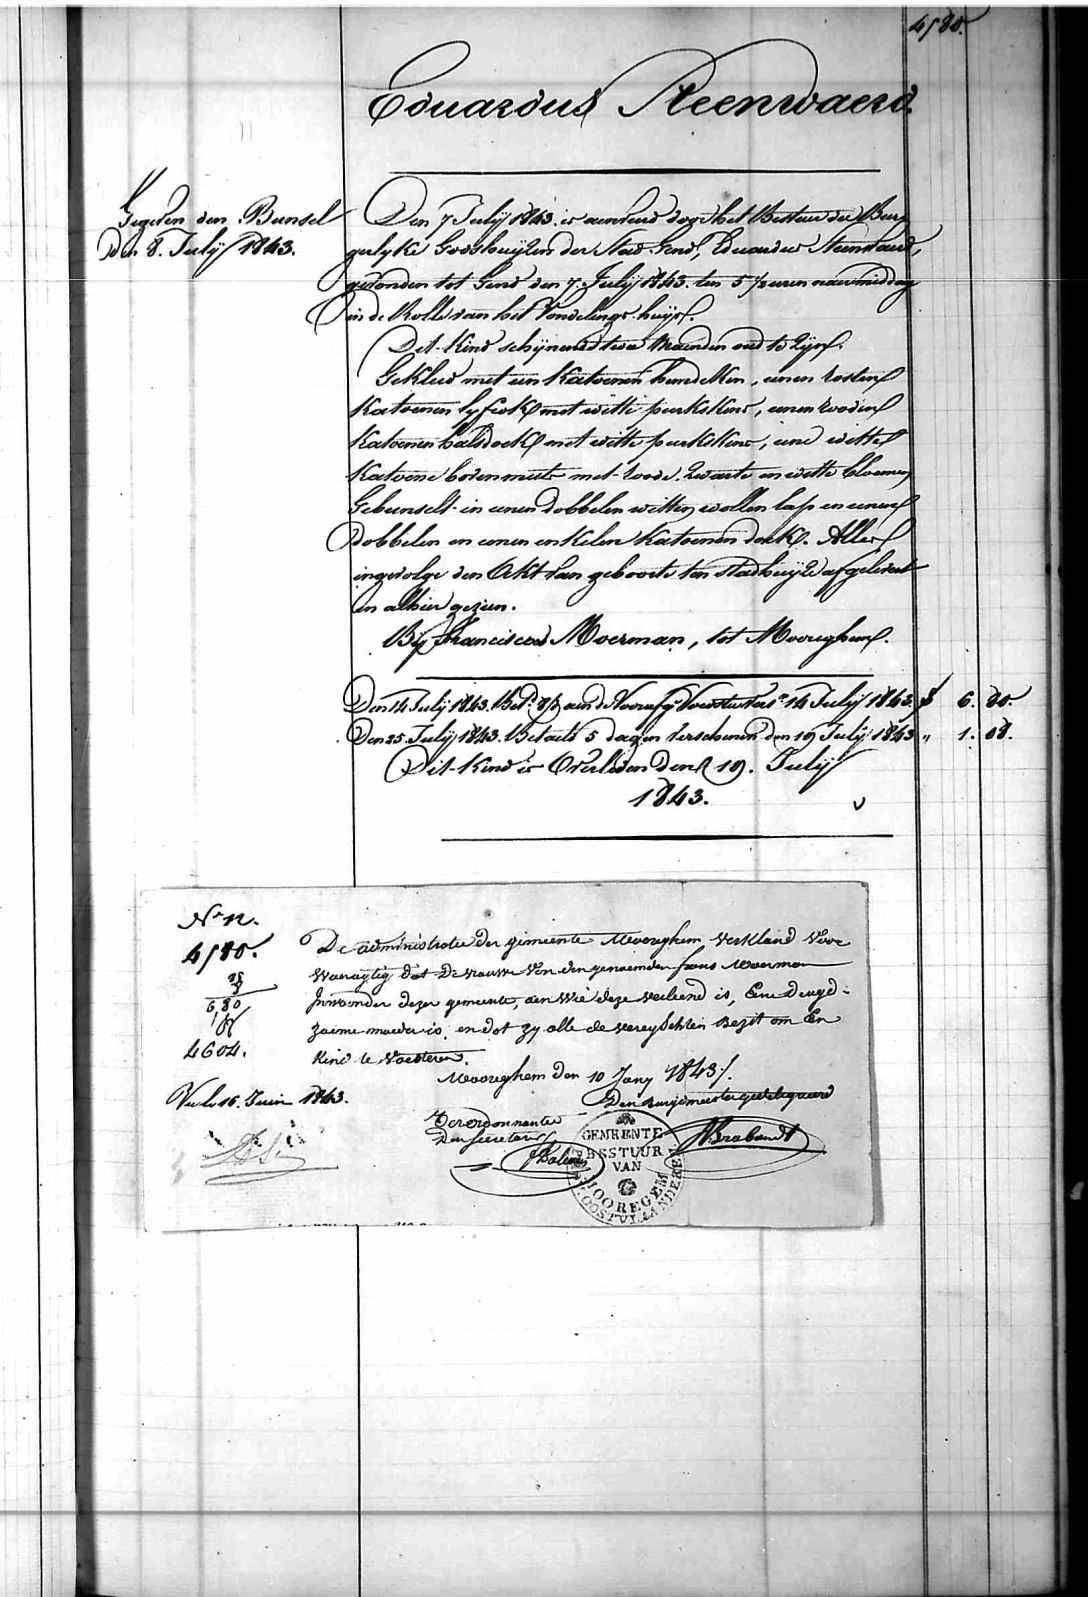 4580.
Eduardus Steenwaerd.
Gegeven den Bunsel
Den 8. July 1843.
Den 7 July 1843. is aenveird door het Bestuer der Burg
gerlyke Godshuyzen der Stad Gend, Eduardus Steenwaerd,
gevonden tot Gend den 7. July 1843. ten 5 1/2 uren naermiddag
in de Rolle van het Vondelings-huys.
Dit Kind schynende twee Maenden oud te Zyn.
Gekleed met een Katoenen hemdeken, eenen rosten
Katoenen lyfrok met witte perkskens, eenen rooden
Katoenen halsdoek met witte perkskens, eene witte
Katoene bovenmuts met roode. Zwarte en witte bloemen
Gebunselt in eenen dobbelen witten wollen lap en eenen
dobbelen en eenen enkelen Katoenen doek. Alles
ingevolge den Akt van geboorte ten stadhuyze afgelevert
en alhier gezien.
By Franciscus Moerman, tot Mooreghem.
Den 14 July 1843. Bet. aen de Voorafg Voedster 14 July 1843. f 6. 80.
Den 25. July 1843. Betaelt 5 dagen verschenen den 19 July 1843 " 1. 08.
Dit Kind is Overleden Den 19. July
1843.
No 12.
4580.
6,80
4604.
De administratie der gimeente Mooreghem Verklaard Voor
Waeragtig dat De vrouw Van den genaemden frans Moerman
Inwoonder dezer gemeente, aen Wie deze verleend is, Eene Deugd-
zaeme moeder is, en dat zy alle de vereyschten Bezit om Een
Kind te Voedsteren.
Mooreghem den 10 Jany 1843/.
Den Burgemeester gedelegueerd
Vu le 16. Juin 1843.
Ter ordonnantie
Den secretaris
Brabandt
GEMEENTE
BESTUUR
VAN
MOOREGEM
OOSTVLAANDEREN